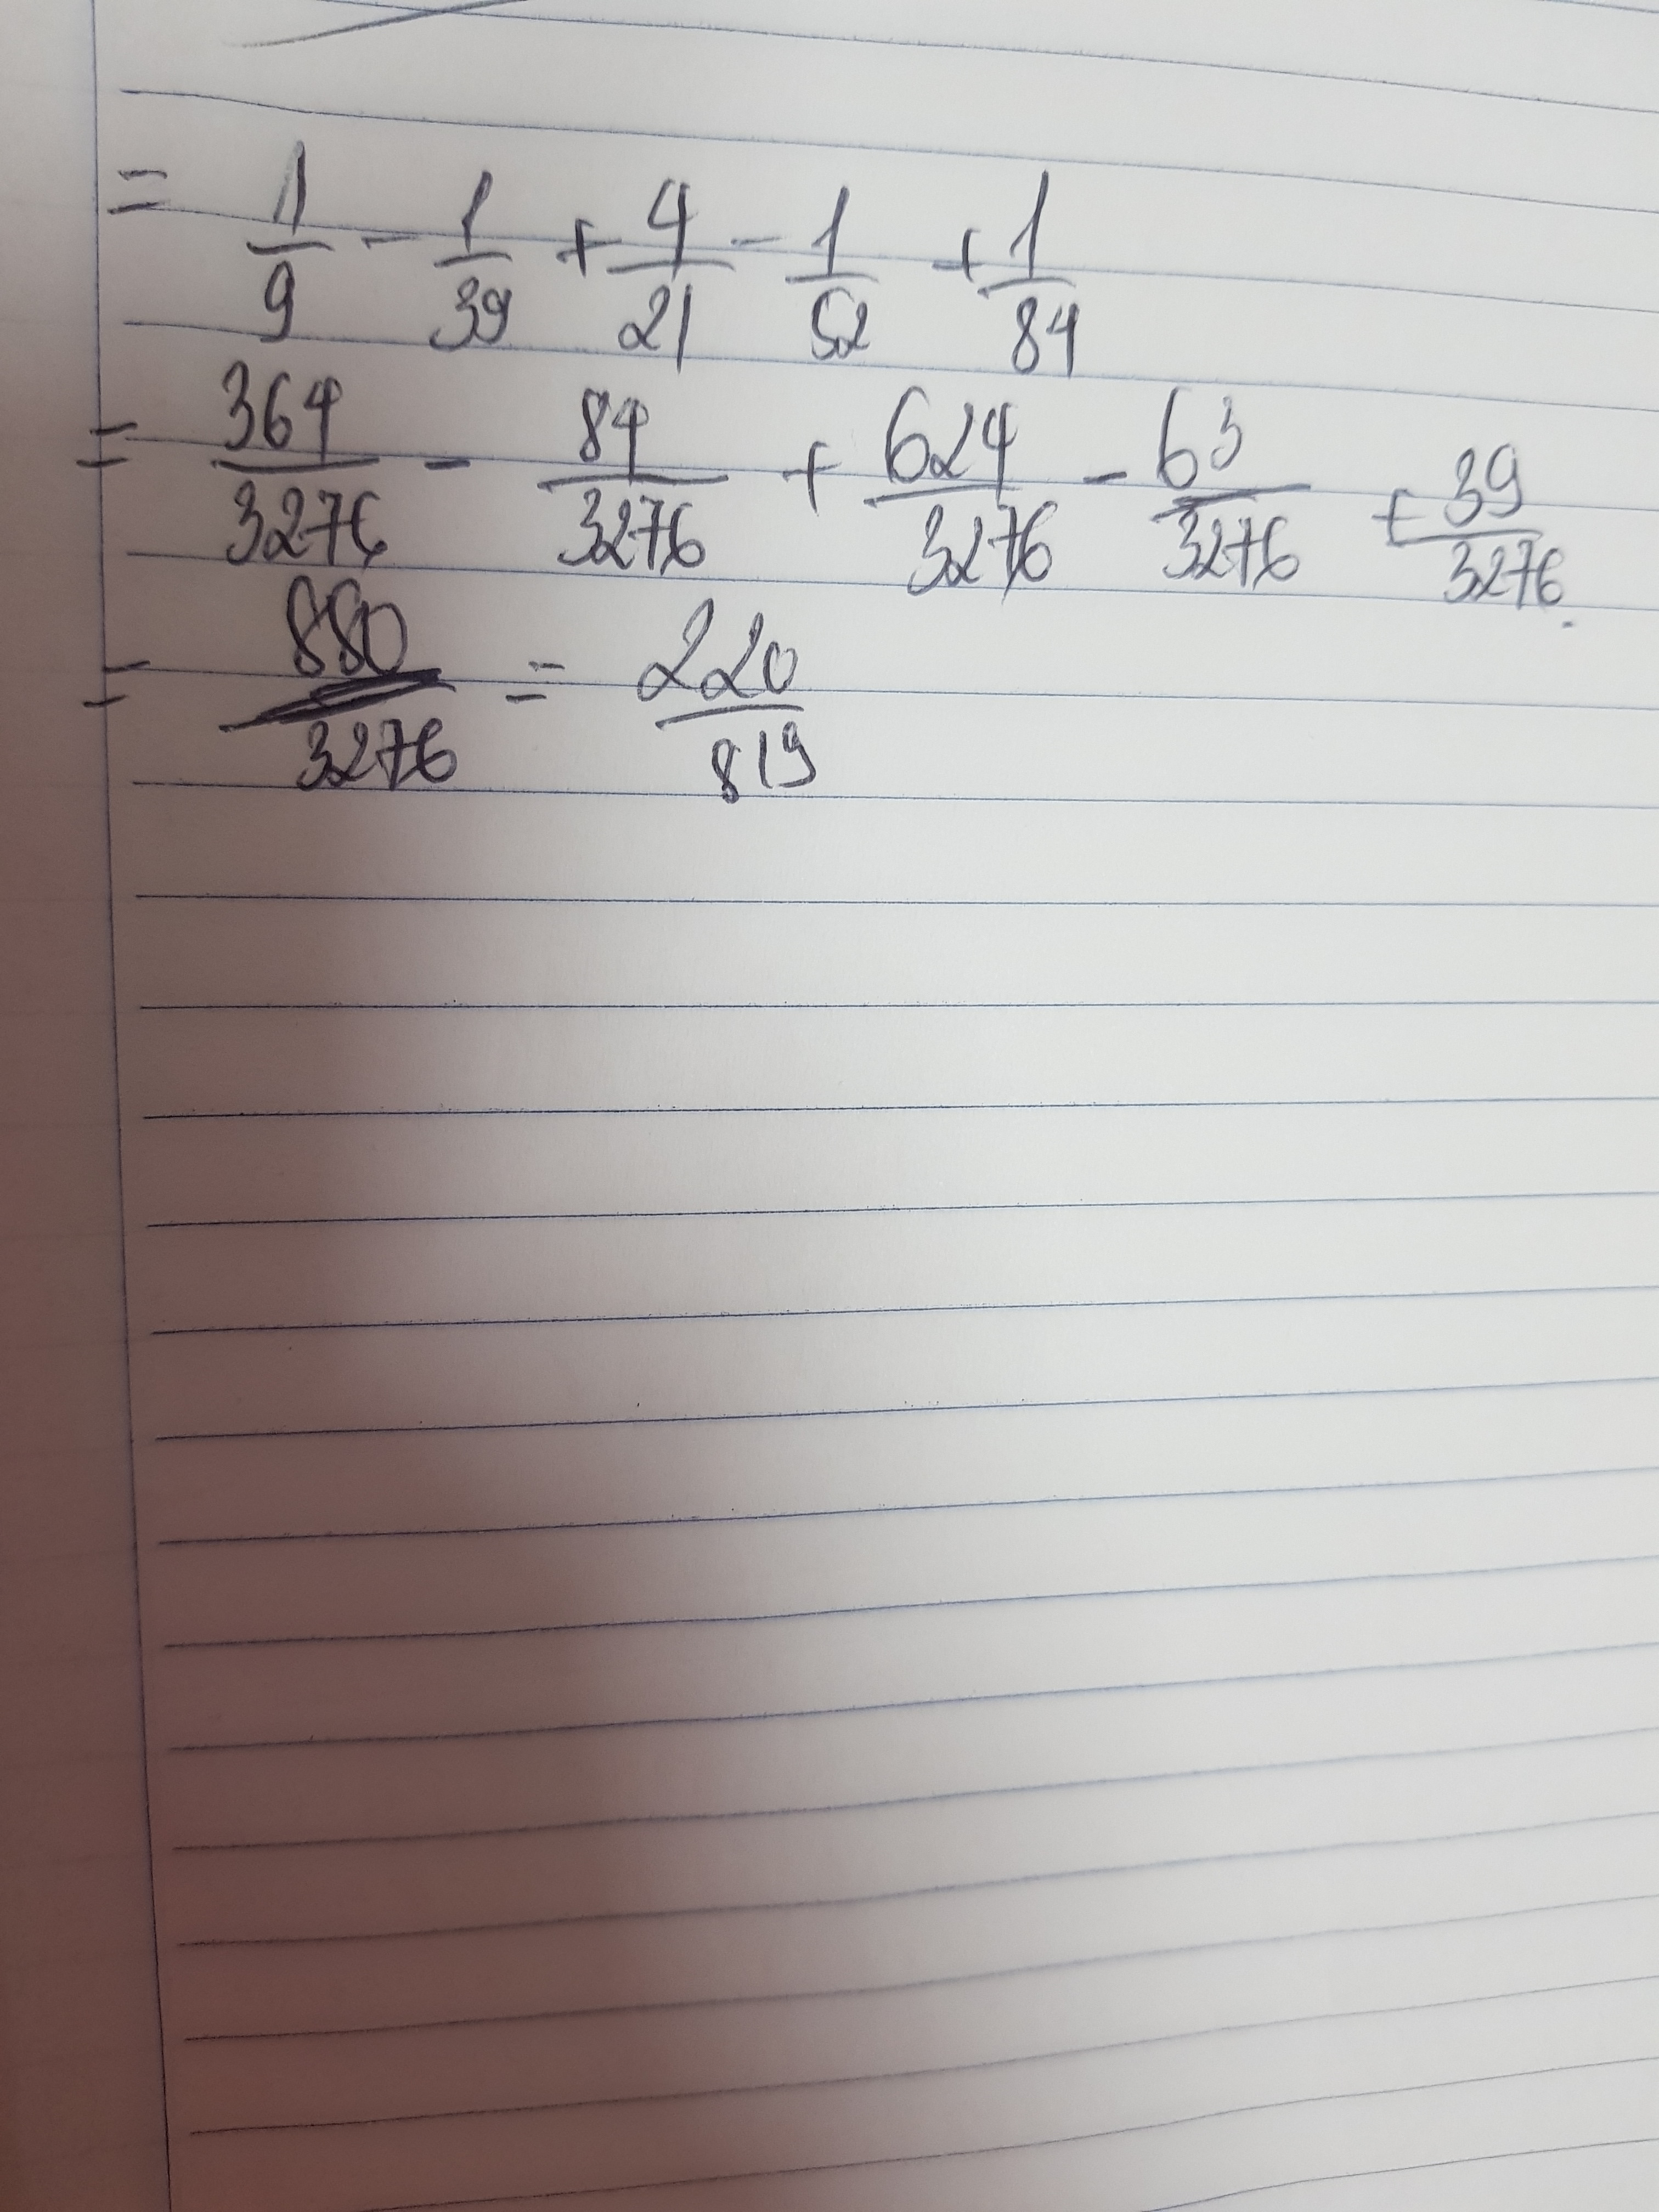 = 1/9 - 1/39 + 4/21 - 1/52 + 1/84
= 364/3276 - 84/3276 + 624/3276 - 63/3276 + 39/3276.
= 880/3276 = 220/819